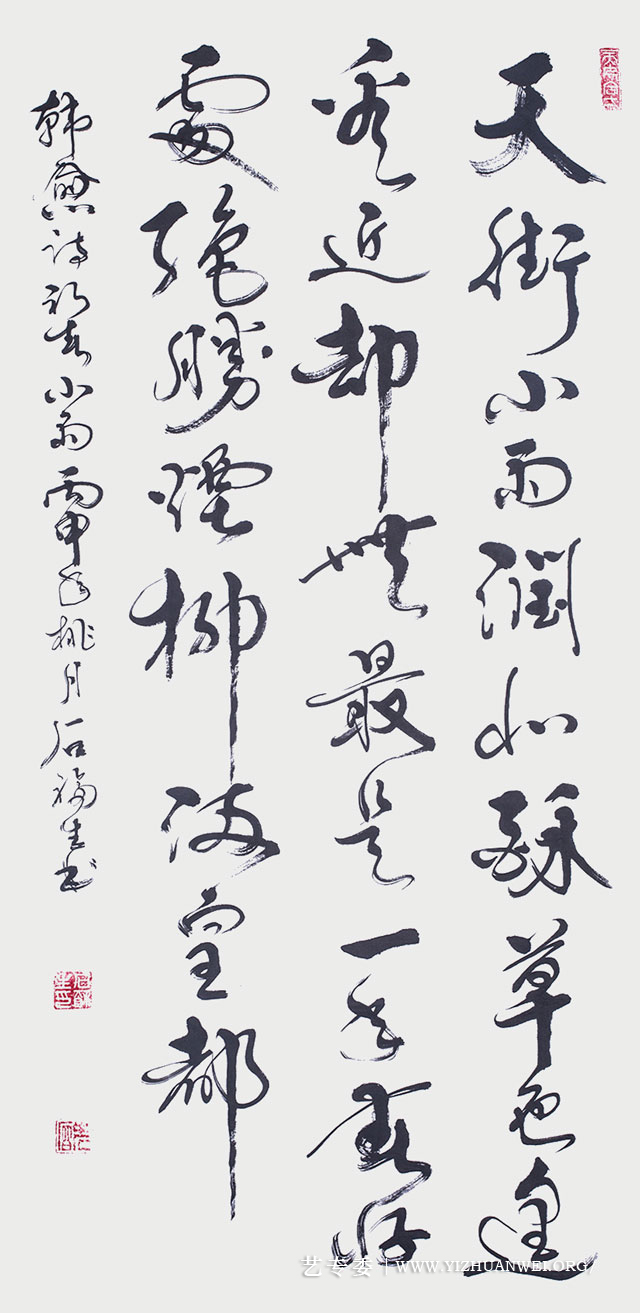 天街小雨潤如酥草色遙
看近却無最是一年春好
處絕勝煙柳滿皇都
韓愈詩初春小雨丙申年桃月石福生书
艺专委 | WWW.YIZHUANWEI.ORG